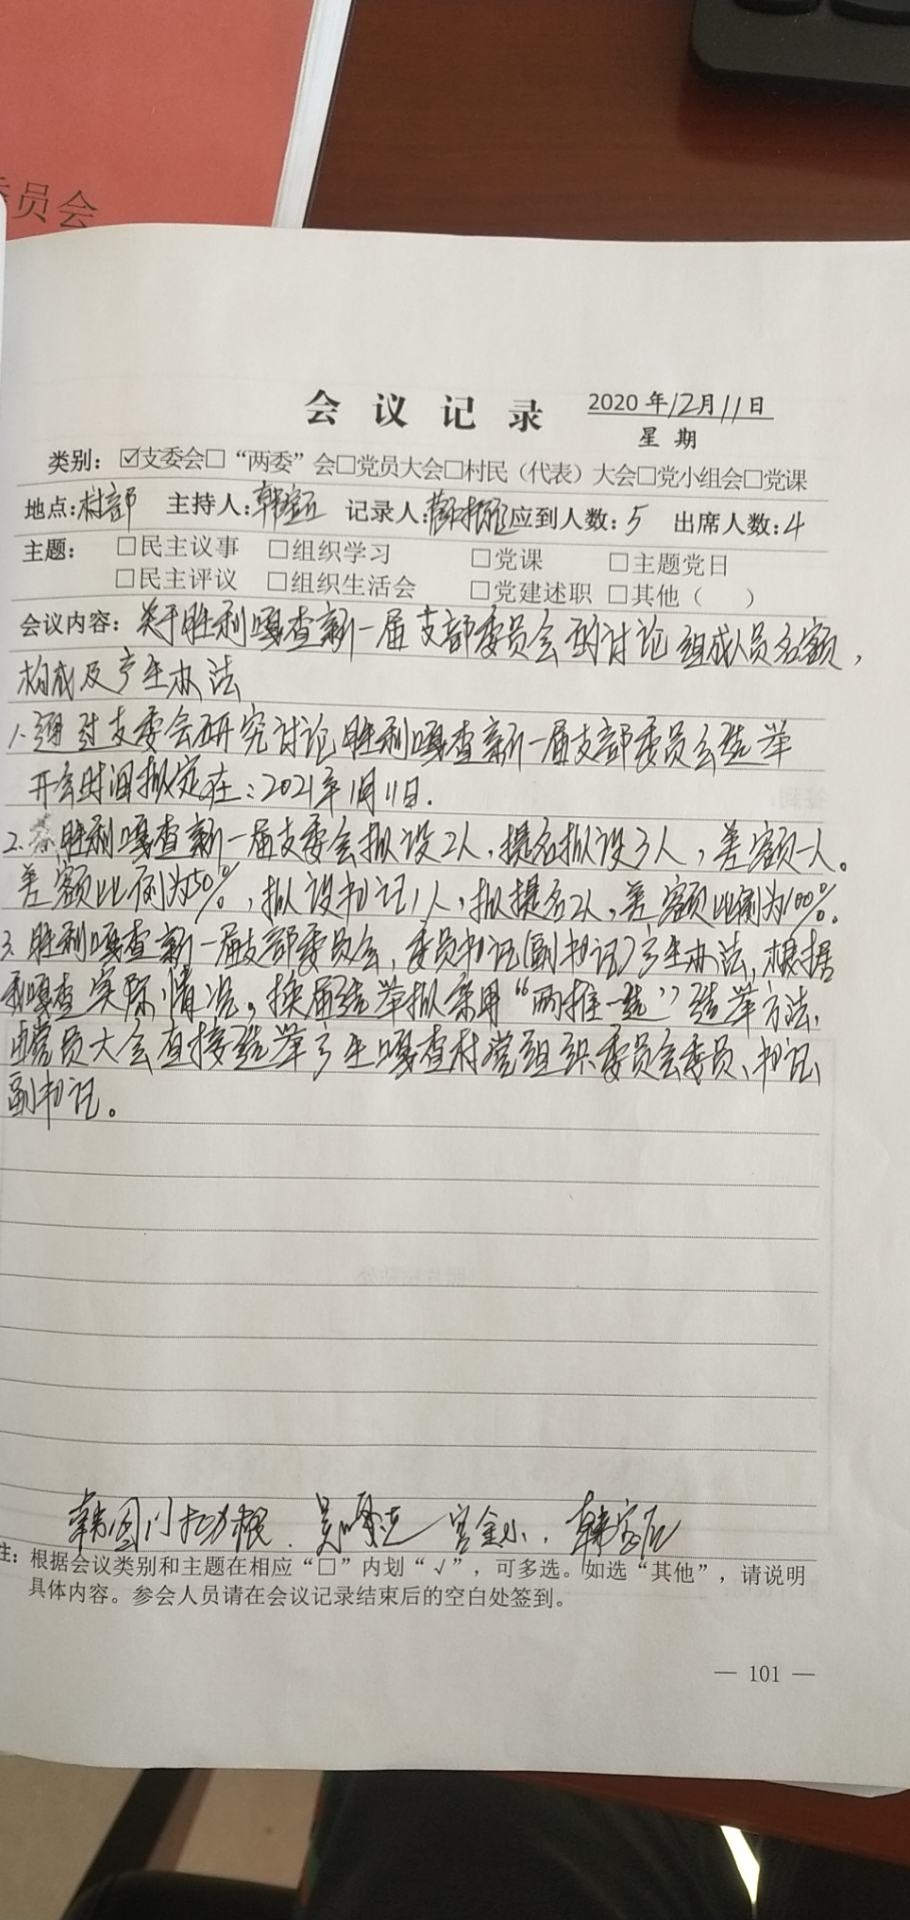 员会
会议记录
2020年12月11日
星期
类别：☑支委会□“两委”会□党员大会□村民（代表）大会□党小组会□党课
地点：村部 主持人：韩 记录人： 应到人数：5 出席人数：4
主题：□民主议事 □组织学习 □党课 □主题党日
□民主评议 □组织生活会 □党建述职 □其他（ ）
会议内容：关于胜利嘎查新一届支部委员会的讨论组成人员名额，
构成及产生办法
1.通过支委会研究讨论胜利嘎查新一届支部委员会选举
开会时间拟定在：2021年1月11日.
2. 胜利嘎查新一届支委会拟设2人，提名拟设3人，差额一人。
差额比例为50%，拟设书记1人，拟提名2人，差额比例为100%.
3.胜利嘎查新一届支部委员会，委员书记(副书记)产生办法，根据
嘎查实际情况。换届选举拟采用“两推一选”选举方法，
由党员大会直接选举产生嘎查村党组织委员会委员、书记、
副书记。
韩国 . 吴 宫金小. 韩
注：根据会议类别和主题在相应“□”内划“√”，可多选。如选“其他”，请说明
具体内容。参会人员请在会议记录结束后的空白处签到。
— 101 —